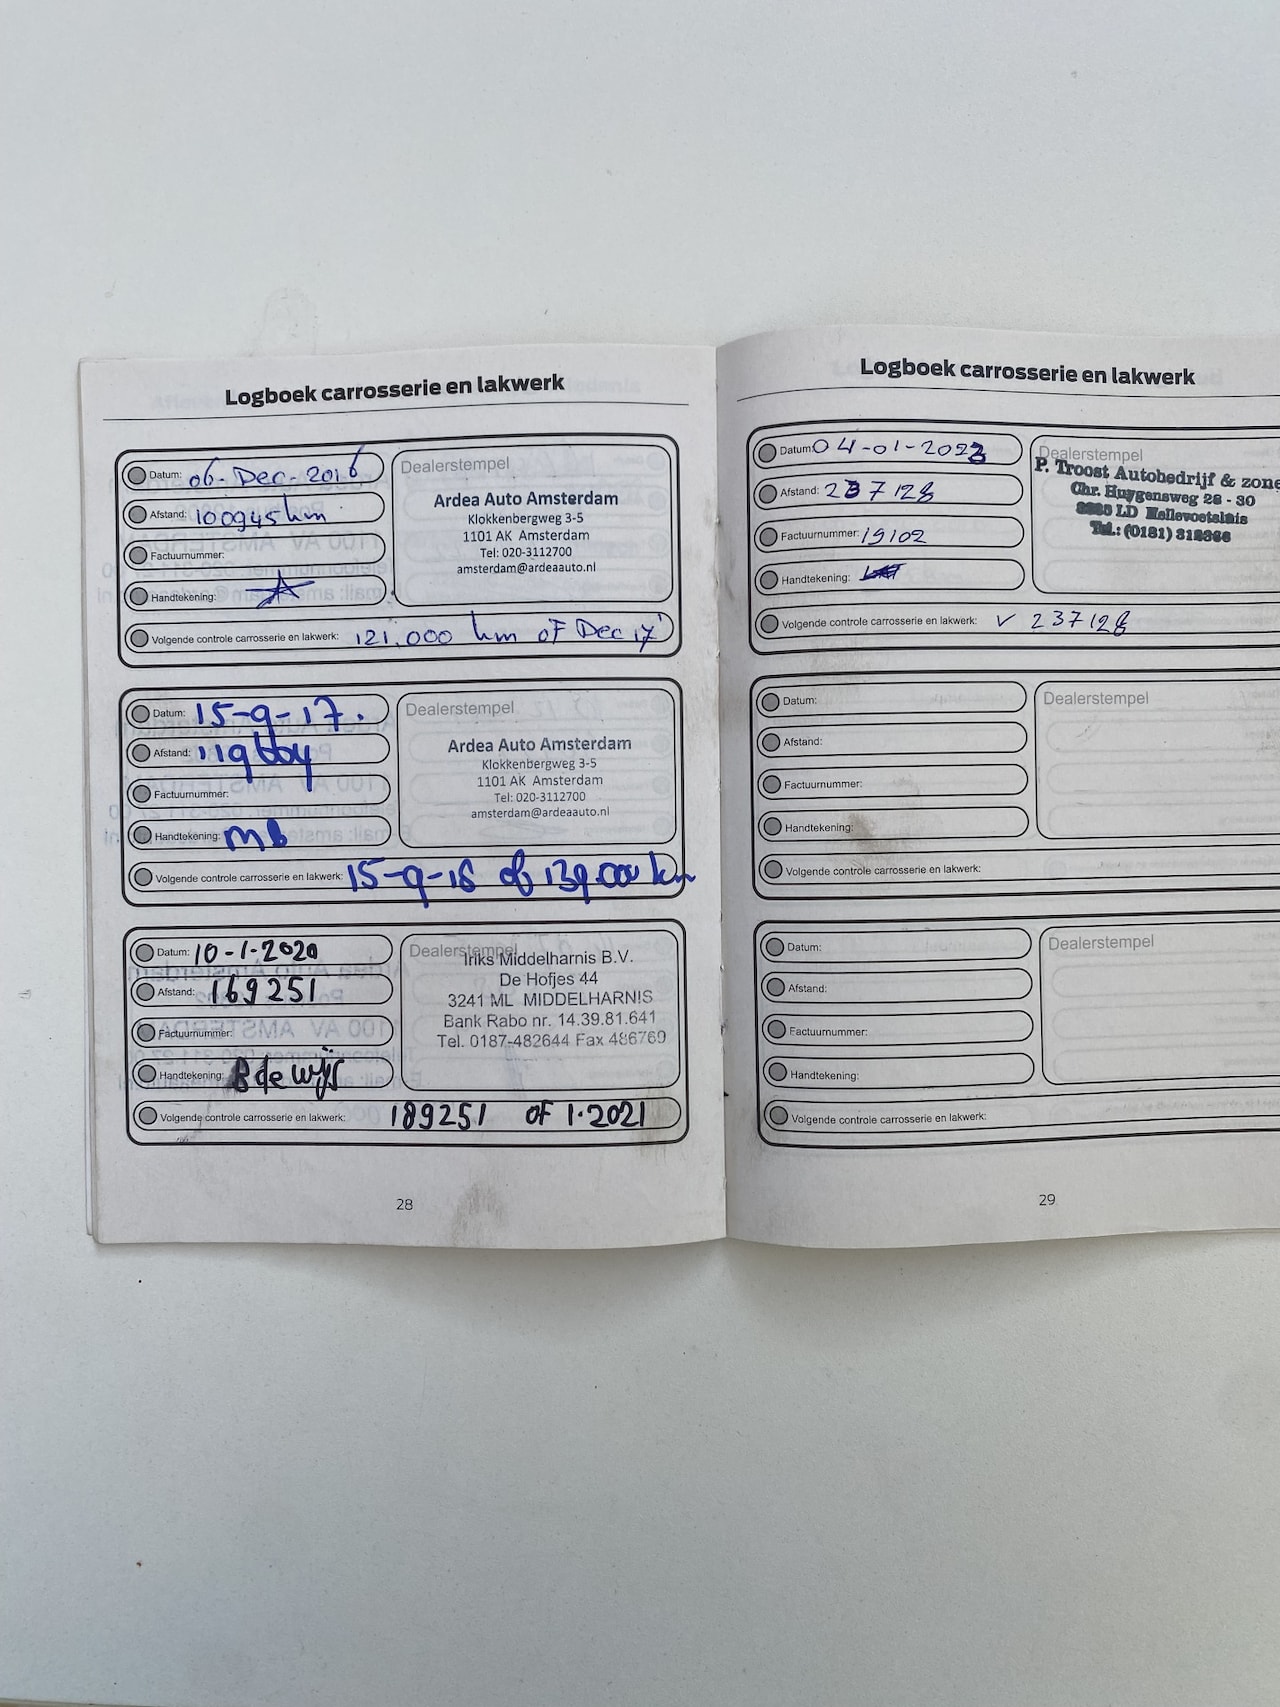 Logboek carrosserie en lakwerk
Datum: 06-Dec-2016
Afstand: 100945 km
Factuurnummer:
Handtekening:
Dealerstempel
Ardea Auto Amsterdam
Klokkenbergweg 3-5
1101 AK Amsterdam
Tel: 020-3112700
amsterdam@ardeaauto.nl
Volgende controle carrosserie en lakwerk: 121.000 km of Dec 17'
Datum: 15-9-17.
Afstand:
Factuurnummer:
Handtekening: MB
Dealerstempel
Ardea Auto Amsterdam
Klokkenbergweg 3-5
1101 AK Amsterdam
Tel: 020-3112700
amsterdam@ardeaauto.nl
Volgende controle carrosserie en lakwerk: 15-9-18 of 139.000 km
Datum: 10-1-2020
Afstand: 169251
Factuurnummer:
Handtekening: B de Wijs
Dealerstempel
Inks Middelharnis B.V.
De Hofjes 44
3241 ML MIDDELHARNIS
Bank Rabo nr. 14.39.81.641
Tel. 0187-482644 Fax 486769
Volgende controle carrosserie en lakwerk: 189251 of 1-2021
28
Logboek carrosserie en lakwerk
Datum: 04-01-2023
Afstand: 237128
Factuurnummer: 19102
Handtekening:
Dealerstempel
P. Troost Autobedrijf & zone
Chr. Huygensweg 28 - 30
LD Hellevoetsluis
Tel.: (0181)
Volgende controle carrosserie en lakwerk: v 237128
Datum:
Afstand:
Factuurnummer:
Handtekening:
Dealerstempel
Volgende controle carrosserie en lakwerk:
Datum:
Afstand:
Factuurnummer:
Handtekening:
Dealerstempel
Volgende controle carrosserie en lakwerk:
29